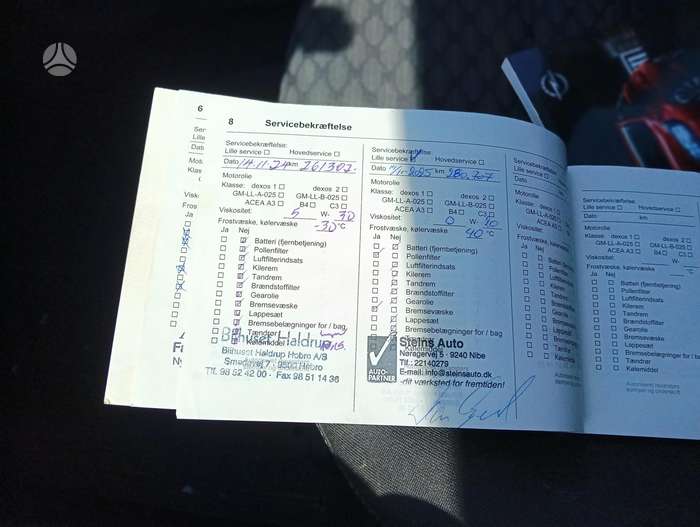 6
8 Servicebekræftelse
Servicebekræftelse:
Lille service Hovedservice
Dato 14.11.24 km 261302
Motorolie
Klasse: dexos 1 dexos 2
GM-LL-A-025 GM-LL-B-025
ACEA A3 B4 C3
Viskositet: 5 W- 30
Frostvæske, kølervæske -30 °C
Ja Nej
Batteri (fjernbetjening)
Pollenfilter
Luftfilterindsats
Kilerem
Tandrem
Brændstoffilter
Gearolie
Bremsevæske
Lappesæt
Bremsebelægninger for / bag
Tændrør
Kølemiddel
Bilhuset Høldrup
Bilhuset Høldrup Hobro A/S
9500 Hobro
Tlf. 98 52 42 00 - Fax 98 51 14 36
Servicebekræftelse:
Lille service Hovedservice
Dato km 280.707
Motorolie
Klasse: dexos 1 dexos 2
GM-LL-A-025 GM-LL-B-025
ACEA A3 B4 C3
Viskositet: 0 W-
Frostvæske, kølervæske 40 °C
Ja Nej
Batteri (fjernbetjening)
Pollenfilter
Luftfilterindsats
Kilerem
Tandrem
Brændstoffilter
Gearolie
Bremsevæske
Lappesæt
Bremsebelægninger for / bag
Kølemiddel
AUTO-
PARTNER
Steins Auto
Nørregervej 5 - 9240 Nibe
Tlf.: 22140279
E-mail: info@steinsauto.dk
-dit værksted for fremtiden!
Servicebekræftelse:
Lille service
Dato
Motorolie
Klasse: dexos 1
GM-LL-A-025
ACEA A3
Viskositet:
Frostvæske, kølervæske
Ja Nej
Batteri
Pollenfilter
Luftfilterindsats
Kilerem
Tandrem
Brændstoffilter
Gearolie
Bremsevæske
Lappesæt
Tændrør
Kølemiddel
Servicebekræftelse:
Lille service Hovedservice
Dato km
Motorolie
Klasse: dexos 1 dexos 2
GM-LL-A-025 GM-LL-B-025
ACEA A3 B4 C3
Viskositet: W-
Frostvæske, kølervæske °C
Ja Nej
Batteri (fjernbetjening)
Pollenfilter
Luftfilterindsats
Kilerem
Tandrem
Brændstoffilter
Gearolie
Bremsevæske
Lappesæt
Bremsebelægninger for / bag
Tændrør
Kølemiddel